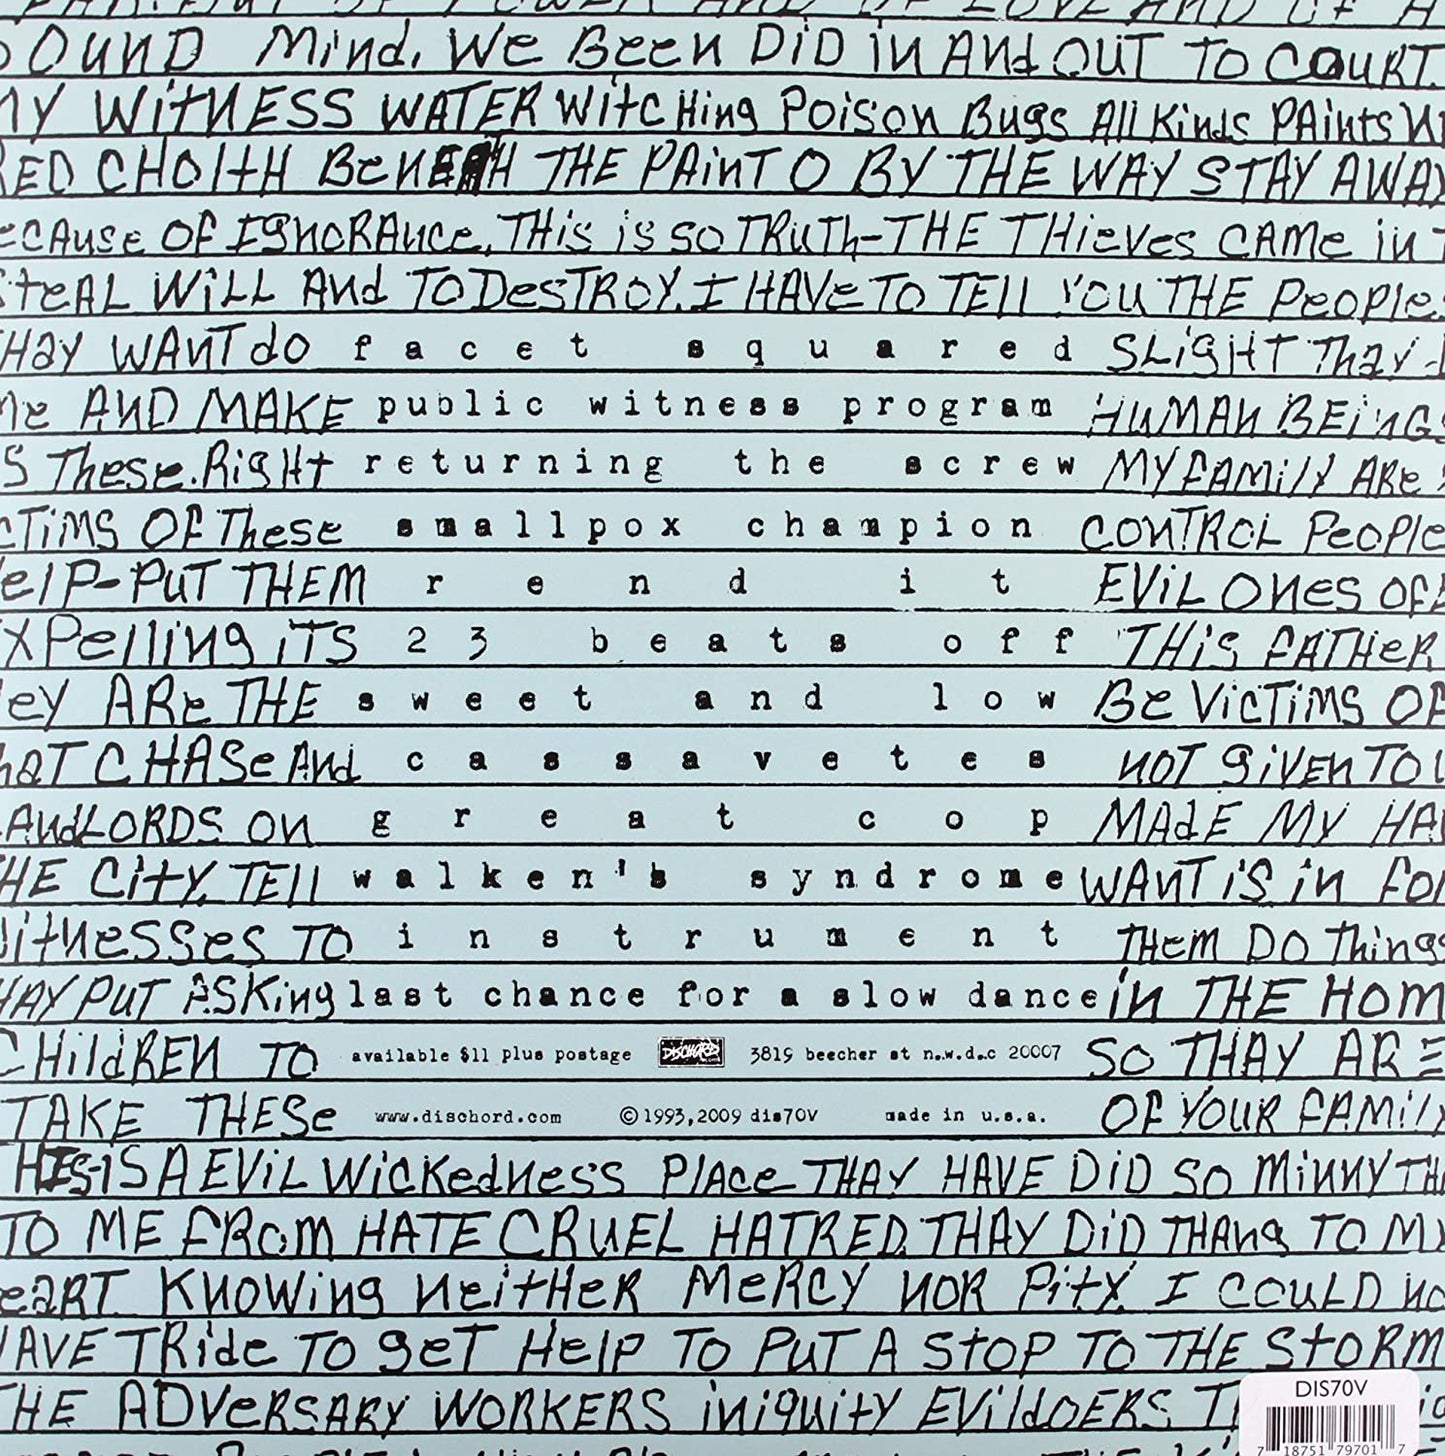 OUND Mind, We BEEN DiD iN ANd OUT TO COURT.
MY WitNESS WATER WitCHing POISON BUgs All Kinds PAiNts
RED CHOItH BeNEAtH THE PAiNT O BY THE WAY STAY AWAY
eCAUSe OF IgNORANce, THis is so TRUth-THE THieVes CAMe iN
SteAL WiLL ANd TO DesTROY. I HAVe TO TEll YOU THE PeOPle.
tHay WANT dO facet squared SLigHT Thay
Me AND MAKE public witness program HUMAN BEiNGS
S These. RigHt returning the screw MY FAMilY ARe
CTiMS OF These smallpox champion CONTROL PeOPle
elP-PUT THEM rend it EViL ONes OF
XPelliNg iTS 23 beats off THis FATHeR
ey ARe THE sweet and low Be VicTiMS OF
hAT CHASe ANd cassavetes NOT giVEN TO
ANdLORDS ON great cop MAdE MY HA
HE CitY. TEll walken's syndrome WANT iS iN FO
itNeSSes TO instrument THeM DO Things
HAY PUT ASKiNg last chance for a slow dance iN THE HOM
CHildREN TO available $11 plus postage DISCHORD 3819 beecher st n.w.d.c 20007 SO THAY ARE
TAKE THESe www.dischord.com ©1993,2009 dis70V made in u.s.a. OF YOUR FAMilY
HIS-iS A EViL WicKedNess PlAce THAY HAVE DiD SO MiNNY TH
TO ME FROM HATE CRUEL HATRED. THAY DiD THANg TO MY
eaRT KNOWiNg NeitHeR MeRCY NOR PitY I COULD NO
HAVE TRide TO geT HelP TO PUT A StOP TO THE StORM
THE ADVeRSARY WORKERS iNiquitY EVildOERS
DIS70V
7 18751 79701 7